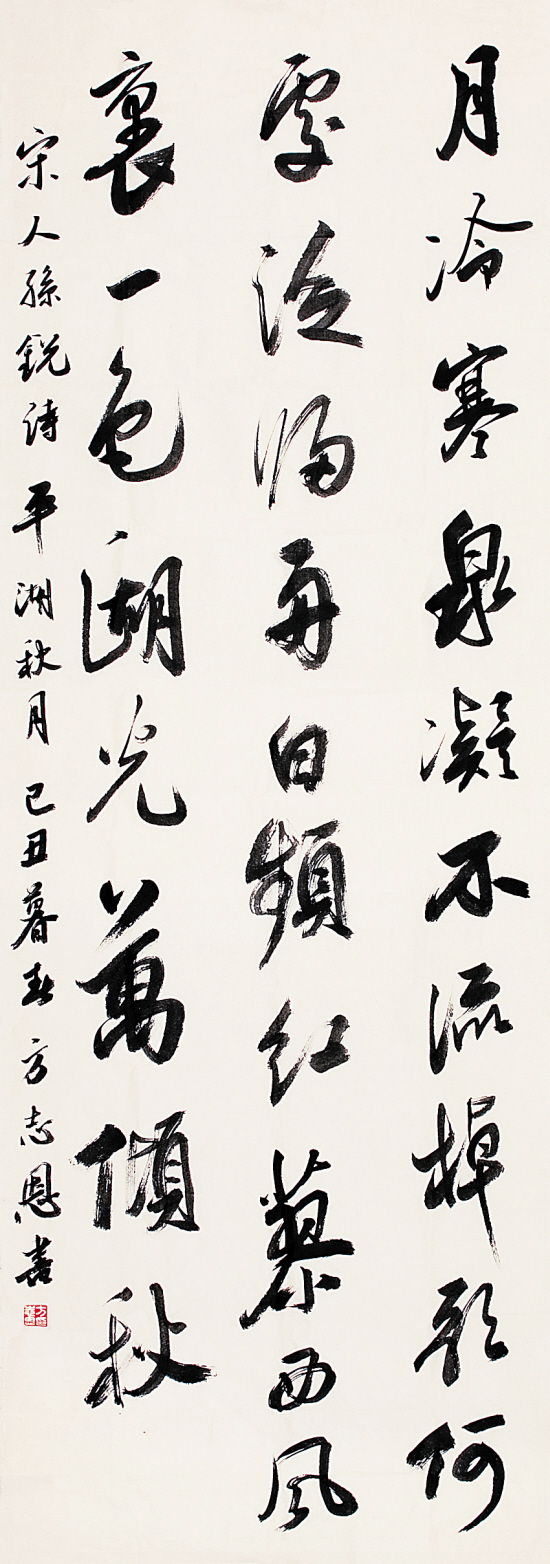 月冷寒泉凝不流棹歌何
處泛归舟白頻红蓼西风
裏一色湖光萬傾秋
宋人孫銳詩平湖秋月己丑暮春方志恩書